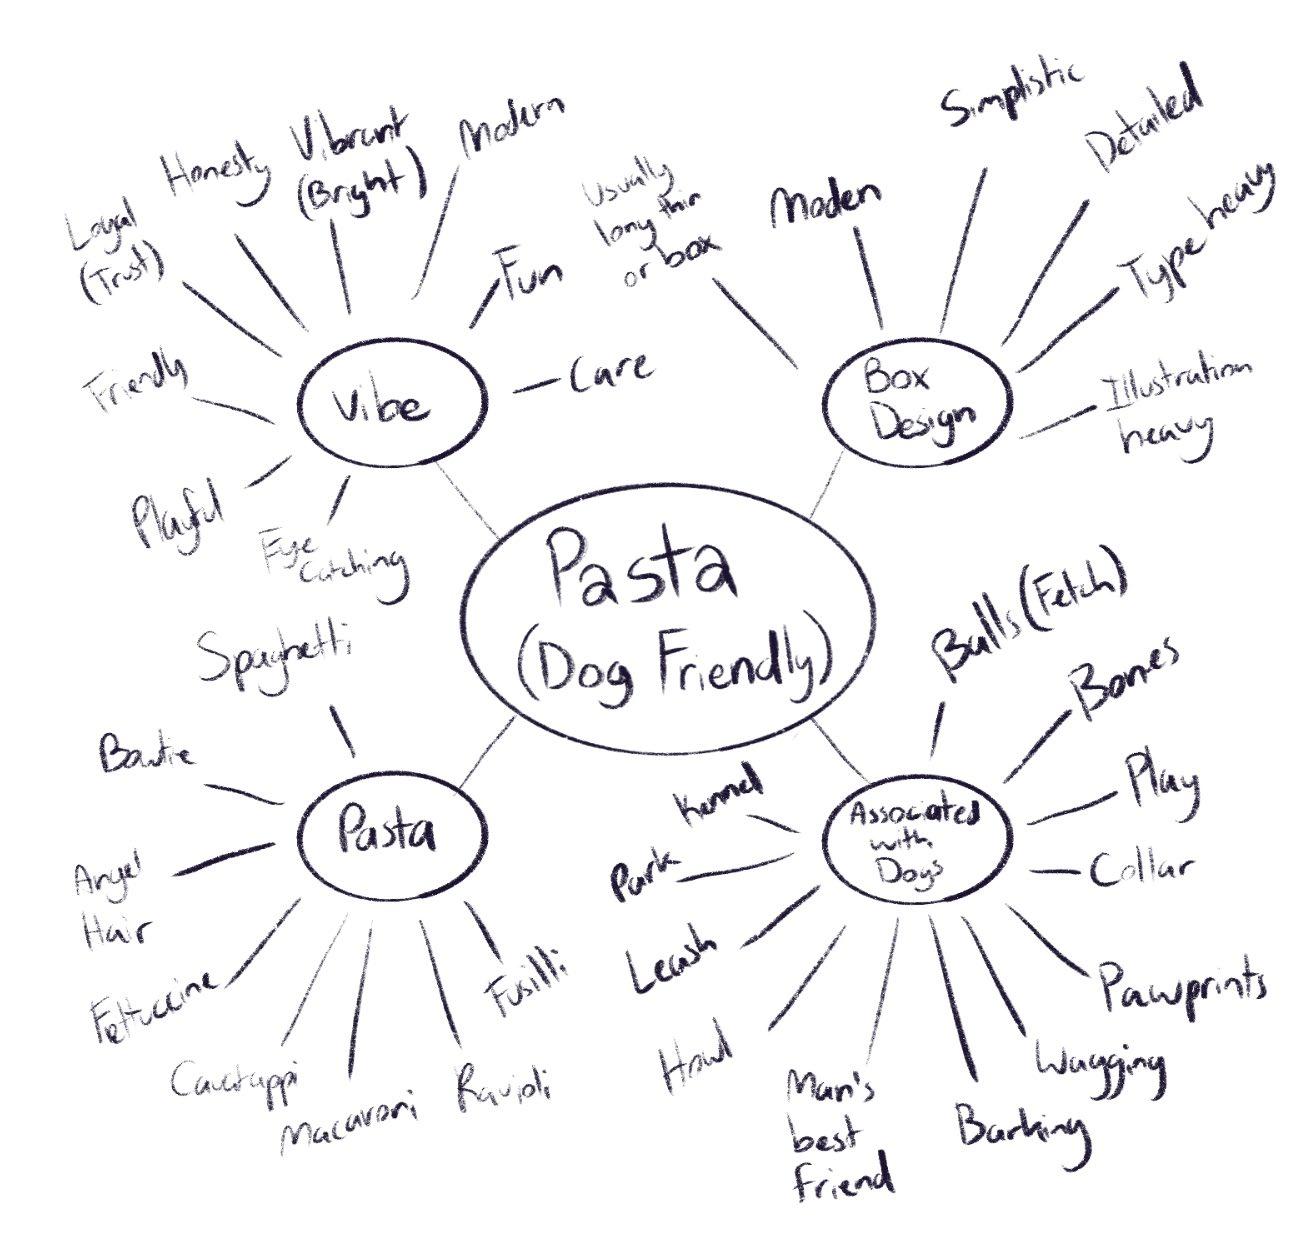 Pasta
(Dog Friendly)
Vibe
Loyal
(Trust)
Honesty
Vibrant
(Bright)
Modern
Fun
Care
Friendly
Playful
Eye
Catching
Box
Design
Usually
long thin
or box
Moden
Simplistic
Detailed
Type heavy
Illustration
heavy
Pasta
Spaghetti
Bowtie
Angel
Hair
Fettuccine
Cavatappi
Macaroni
Ravioli
Fusilli
Associated
with
Dogs
Balls (Fetch)
Bones
Play
Collar
Pawprints
Wagging
Barking
Man's
best
friend
Howl
Leash
Park
Kennel